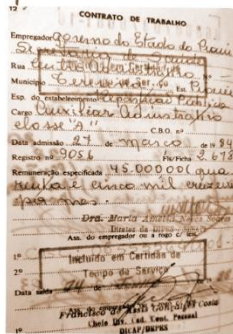 12
CONTRATO DE TRABALHO
Empregador Governo do Estado do Piauí
Secretaria de
Rua Centro Administrativo
Município Teresina Est. Piauí
Esp. do estabelecimento Repartição Pública
Cargo Auxiliar Administrativo
classe "A"
C.B.O. nº
Data admissão 27 de março de 1984
Registro nº 9056 Fls/Ficha 2.678
Remuneração especificada 45.000,00 (qua
renta e cinco mil cruzeiros
por mes.
Dra. Maria
Ass. do empregador ou a rogo c/ test.
1º
2º
Incluído em Certidão de
Tempo de Serviço
Data saída de
Francisco de Assis Gonçalves Costa
Chefe Div. Cad. Cont. Pessoal
1º
DICAP/DRPRS